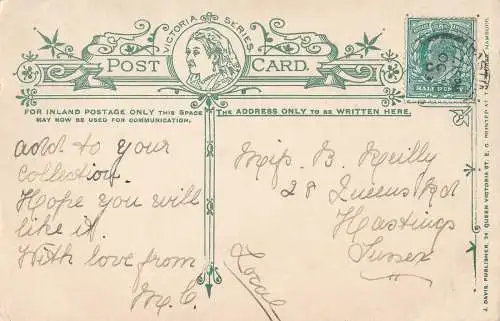 VICTORIA SERIES
POST CARD.
FOR INLAND POSTAGE ONLY THIS SPACE
MAY NOW BE USED FOR COMMUNICATION.
THE ADDRESS ONLY TO BE WRITTEN HERE.
HALFPENNY
add to your
collection.
Hope you will
like it.
With love from
M.C.
Miss B. Reilly
28 Queens Rd
Hastings
Sussex
Local
J. DAVIS, PUBLISHER, 24 QUEEN VICTORIA ST. E.C. PRINTED AT HAMBURG.